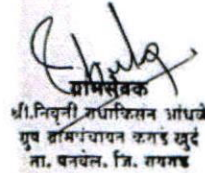 ग्रामसेवक
श्री.निवृत्ती राधाकिसन आंधळे
ग्रुप ग्रामपंचायत करनाडे खुर्द
ता. पनवेल, जि. रायगड